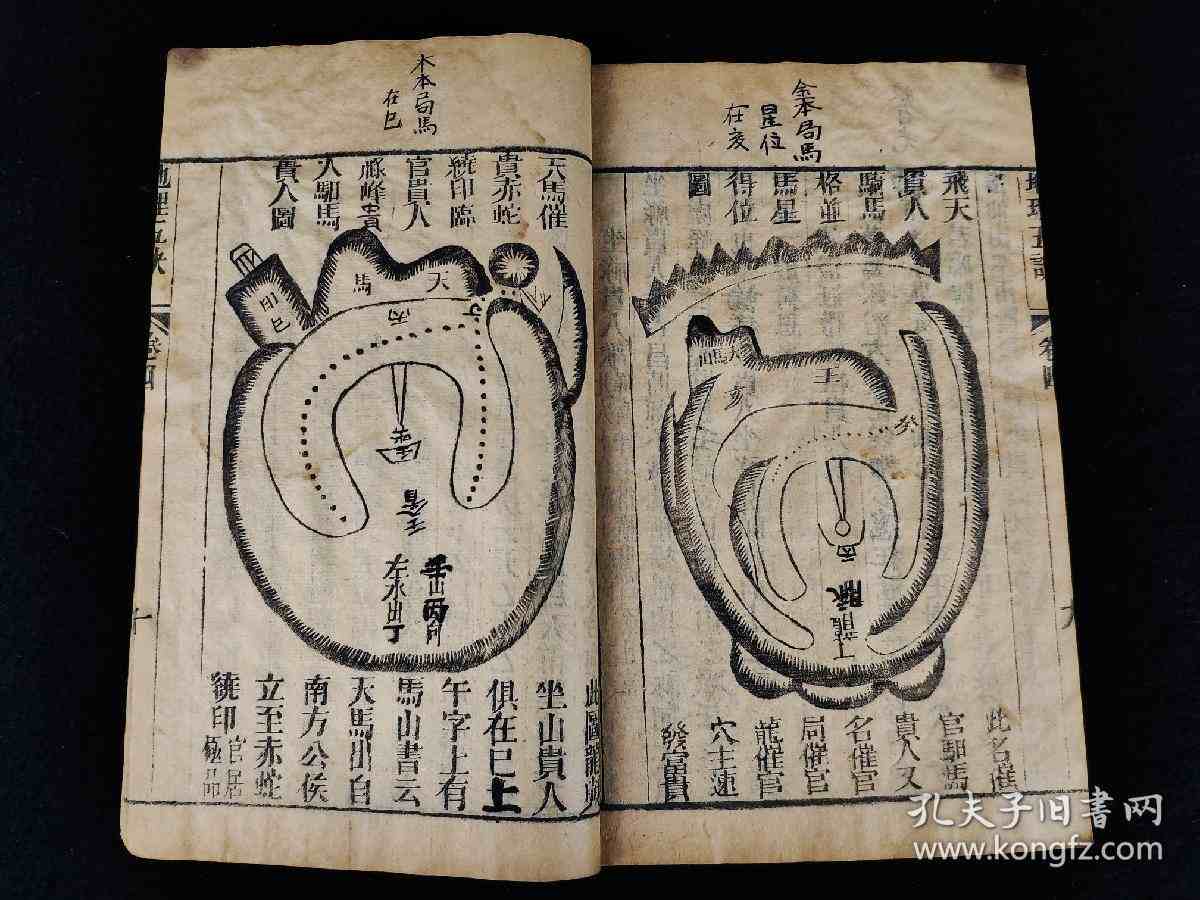 金本局馬
星位
在亥
飛天
貴人
驕馬
格並
馬星
得位
圖
馬
亥
壬
癸
丙
龍
丁
此名催
官馹馬
貴人又
名催官
局催官
龍催官
穴主速
發富貴
卷四
木本局馬
在巳
天馬催
貴赤蛇
繞印臨
官貴人
祿峰貴
人馹馬
貴人圖
天
馬
印
巳
丙
左水出
丁
此圖龍
坐山貴人
俱在巳上
午字上有
馬山書云
天馬出自
南方公侯
立至赤蛇
繞印官居
極品
地理五訣
卷四
十
孔夫子旧书网
www.kongfz.com